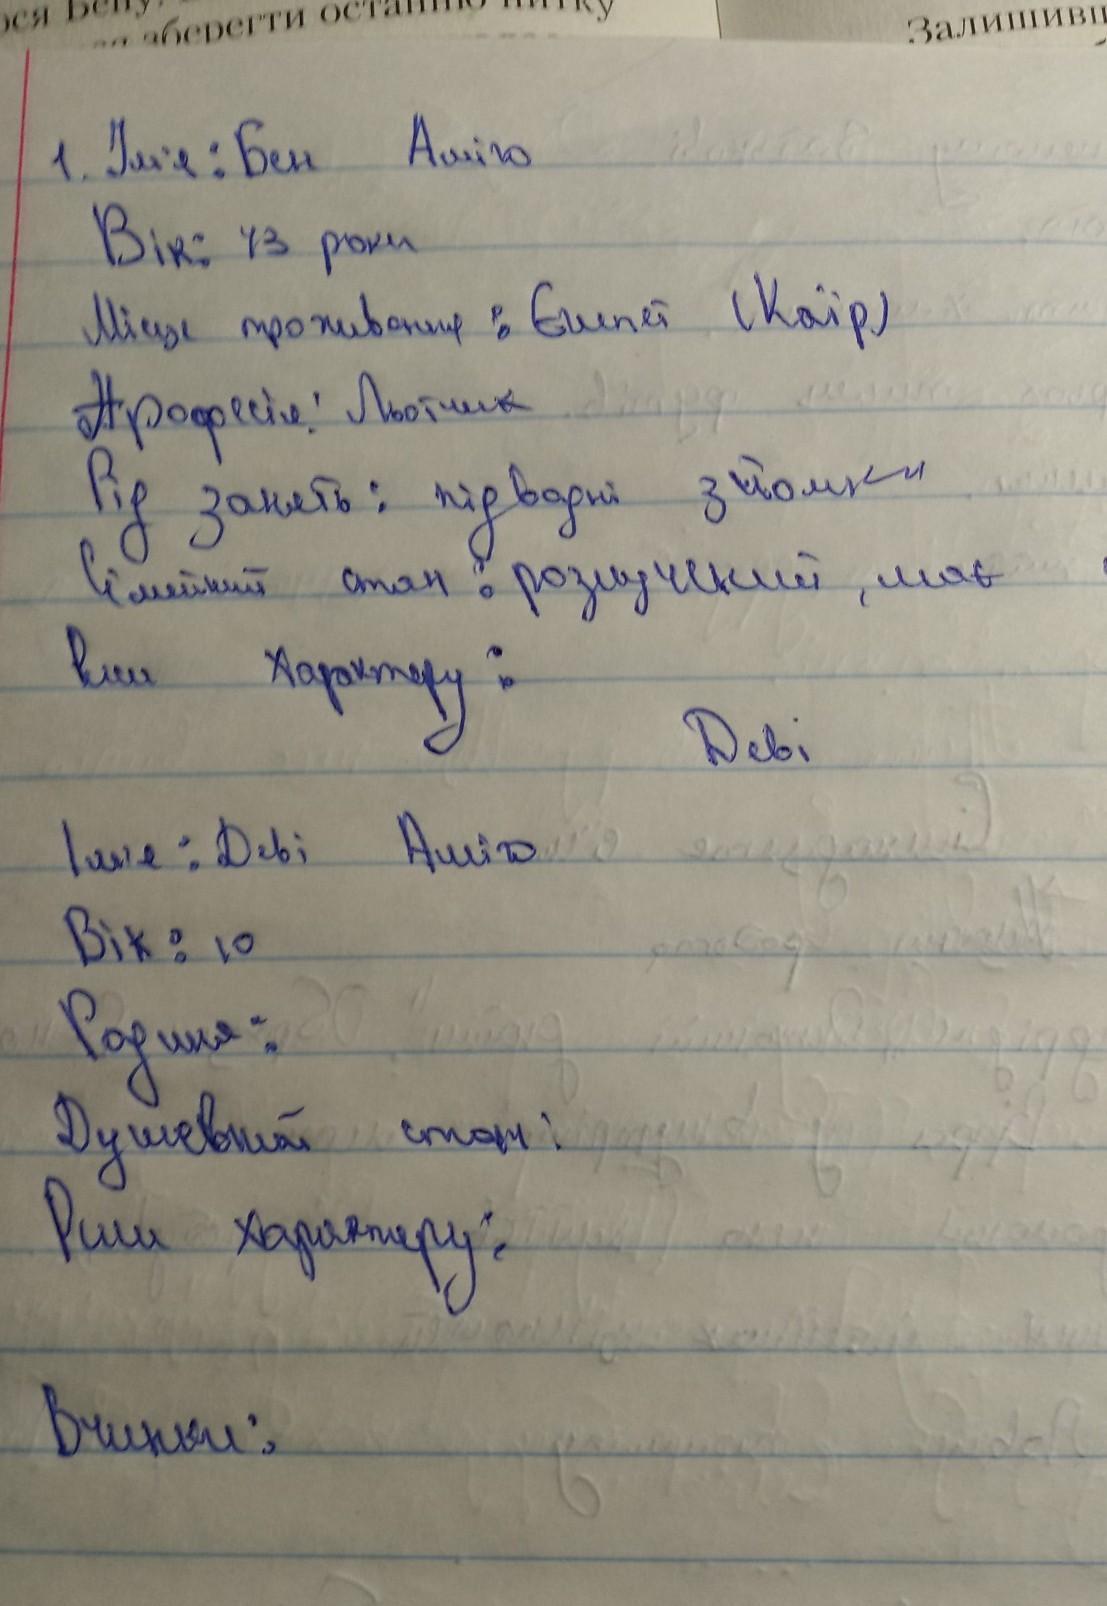 ося Бену.
зберегти останню нитку
Залишивш
1. Ім'я: Бен Аміго
Вік: 43 роки
Місце проживання: Єгипет (Каїр)
Професія: Льотчик
Рід занять: підводні зйомки
Сімейний стан: розлучений, має
характеру:
Деві
Ім'я: Деві Аміго
Вік: 10
Родина:
Душевний стан:
Риси характеру:
Вчинки: